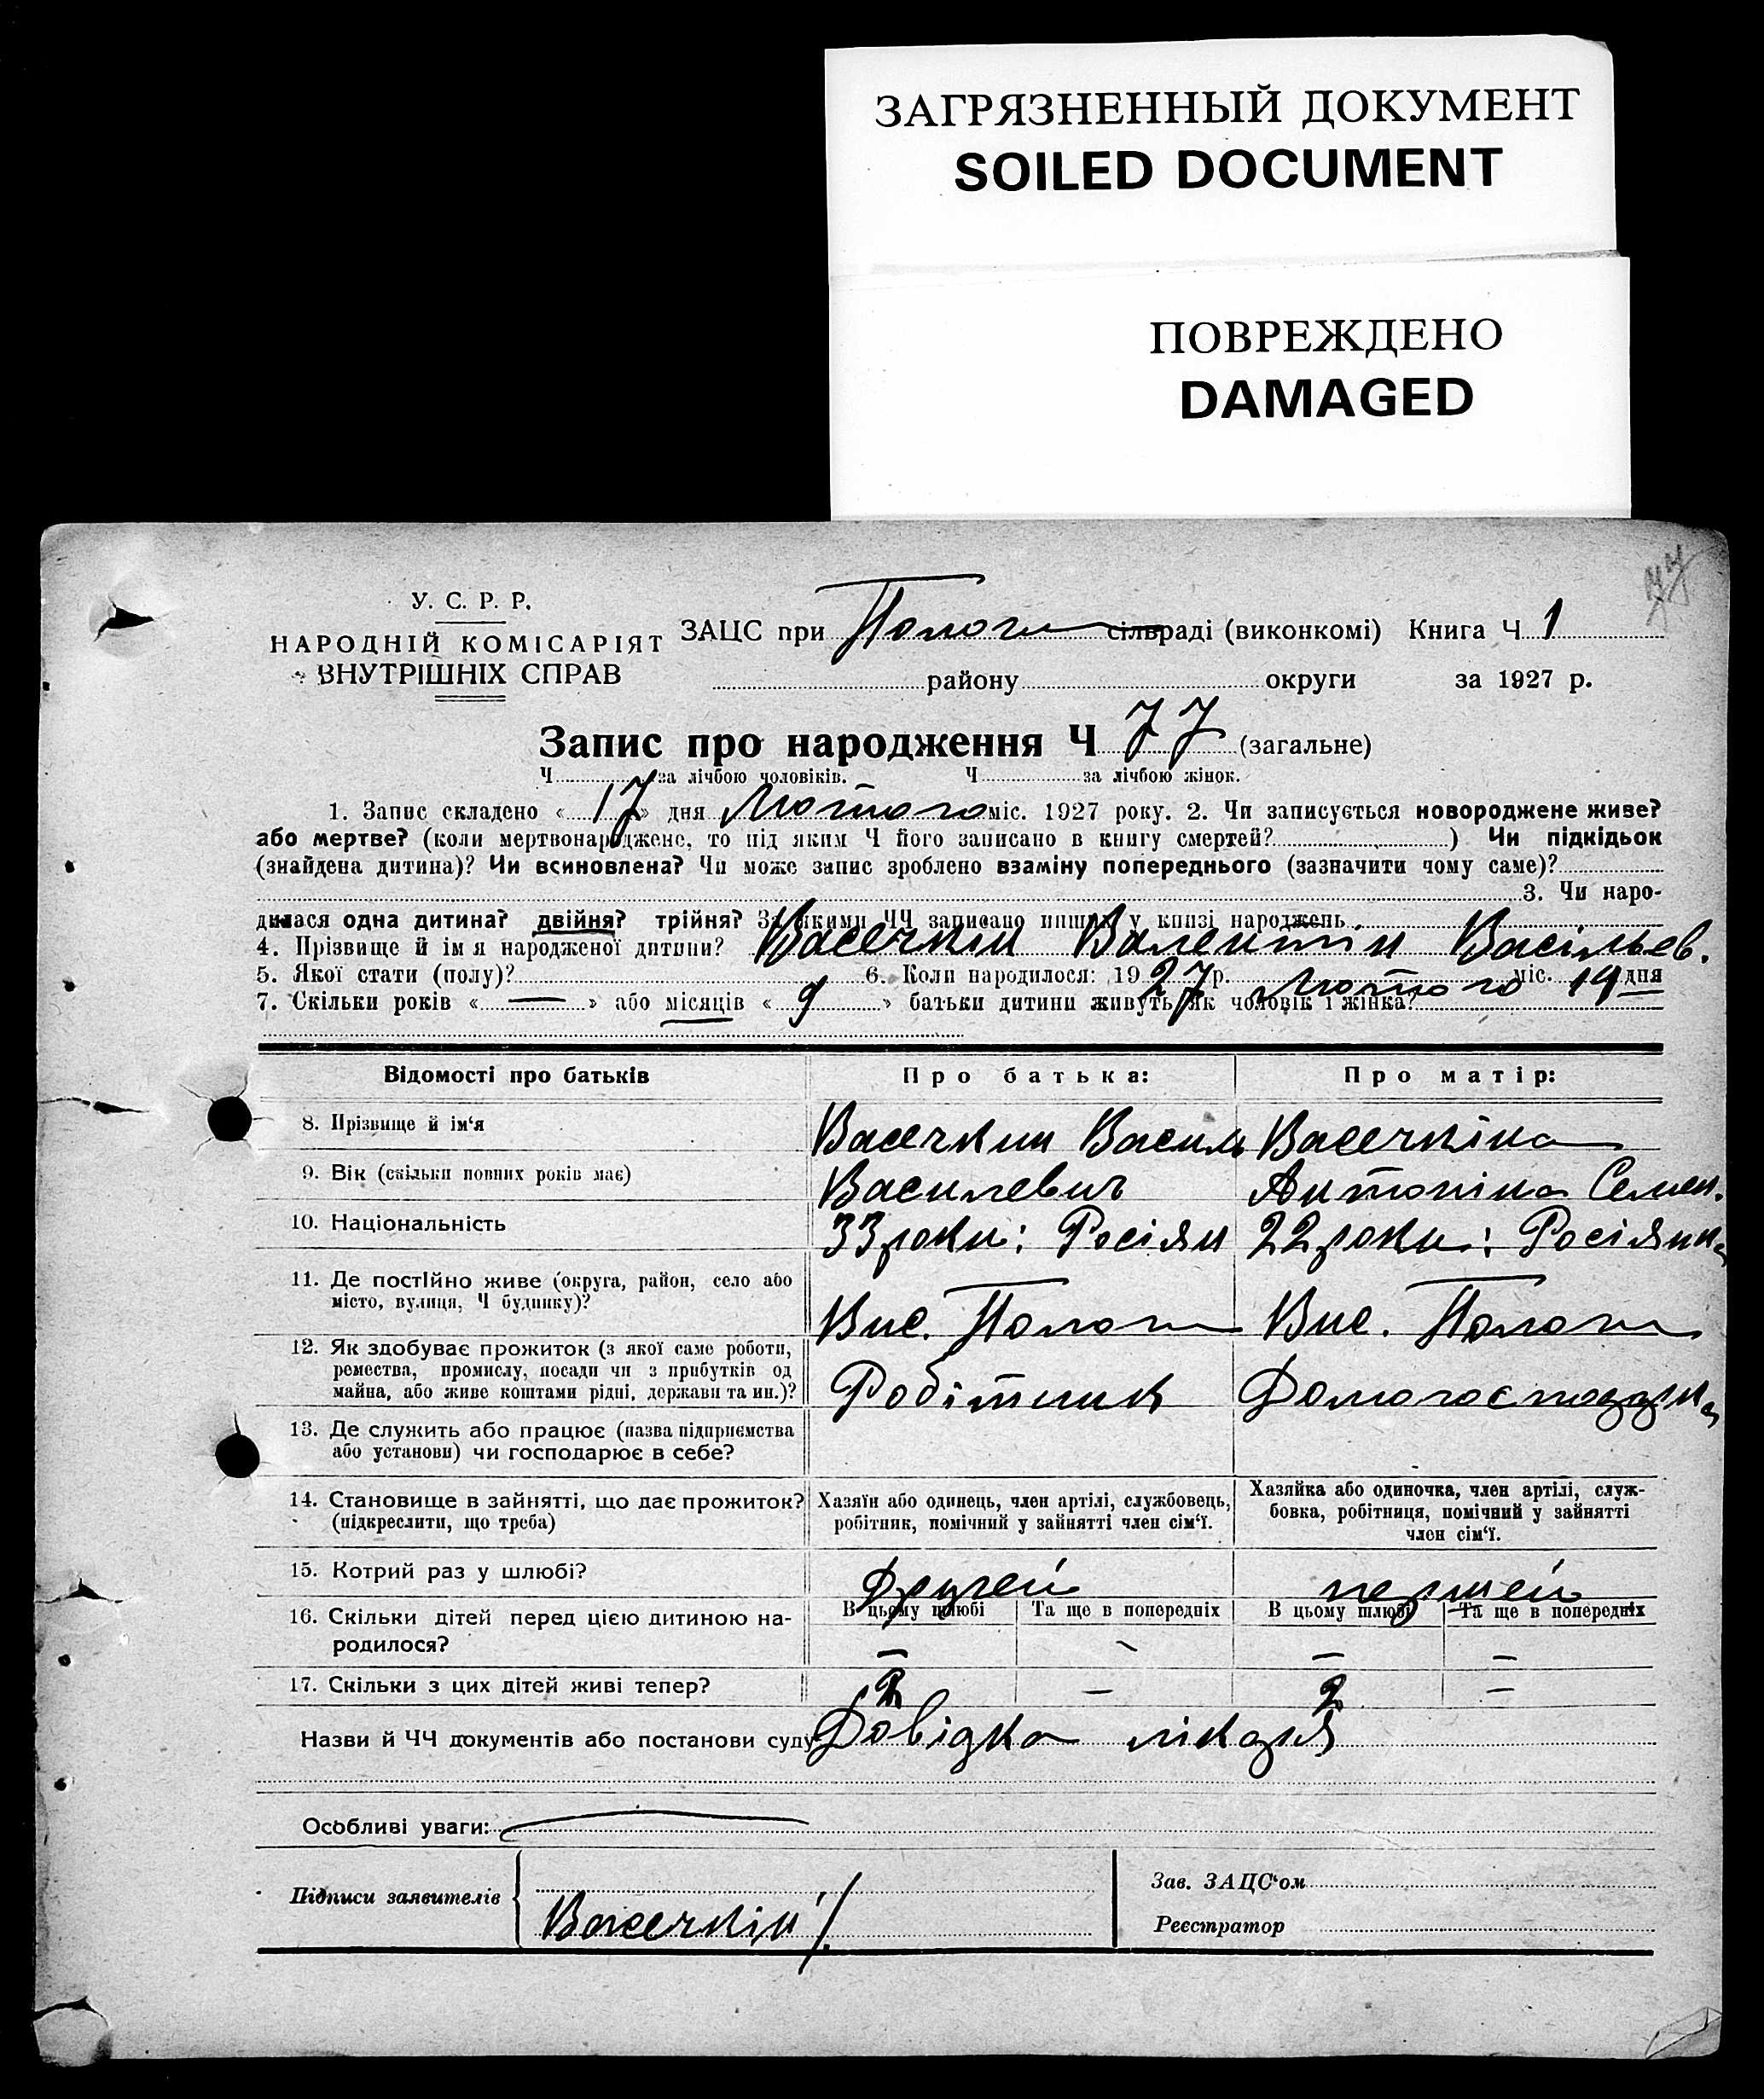 ЗАГРЯЗНЕННЫЙ ДОКУМЕНТ
SOILED DOCUMENT
ПОВРЕЖДЕНО
DAMAGED
77
У. С. Р. Р.
НАРОДНІЙ КОМІСАРІЯТ
ВНУТРІШНІХ СПРАВ
ЗАЦС при Пологи сільраді (виконкомі) Книга Ч 1
району округи за 1927 р.
Запис про народження Ч 77 (загальне)
Ч за лічбою чоловіків. Ч за лічбою жінок.
1. Запис складено « 17 » дня Лютого міс. 1927 року. 2. Чи записується новороджене живе?
або мертве? (коли мертвонароджене, то під яким Ч його записано в книгу смертей? ) Чи підкідьок
(знайдена дитина)? Чи всиновлена? Чи може запис зроблено взаміну попереднього (зазначити чому саме)?
3. Чи наро-
дилася одна дитина? двійня? трійня? За якими ЧЧ записано инших у книзі народжень
4. Прізвище й ім я народженої дитини? Васечкін Валентін Васільев.
5. Якої стати (полу)? 6. Коли народилося: 1927 р. Лютого міс. 14 дня
7. Скільки років « — » або місяців « 9 » батьки дитини живуть як чоловік і жінка?
Відомості про батьків Про батька: Про матір:
8. Прізвище й ім‘я Васечкин Василь Васечкіна
9. Вік (скільки повних років має) Василевич Антоніна Семен.
10. Національність 33 роки: Росіян 22 роки: Росіянка
11. Де постійно живе (округа, район, село або
місто, вулиця, Ч будинку)? Вис. Пологи Вис. Пологи
12. Як здобуває прожиток (з якої саме роботи,
ремества, промислу, посади чи з прибутків од
майна, або живе коштами рідні, держави та ин.)? Робітник
13. Де служить або працює (назва підприємства
або установи) чи господарює в себе?
14. Становище в зайнятті, що дає прожиток?
(підкреслити, що треба)
Хазяїн або одинець, член артілі, службовець,
робітник, помічний у зайнятті член сім‘ї.
Хазяйка або одиночка, член артілі, служ-
бовка, робітниця, помічний у зайнятті
член сім‘ї.
15. Котрий раз у шлюбі? Другей першей
16. Скільки дітей перед цією дитиною на-
родилося?
В цьому шлюбі Та ще в попередніх В цьому шлюбі Та ще в попередніх
— — — —
17. Скільки з цих дітей живі тепер? 2 — 2 —
Назви й ЧЧ документів або постанови суду: Довідка лікаря
Особливі уваги:
Підписи заявителів Васечкін
Зав. ЗАЦС‘ом
Реєстратор